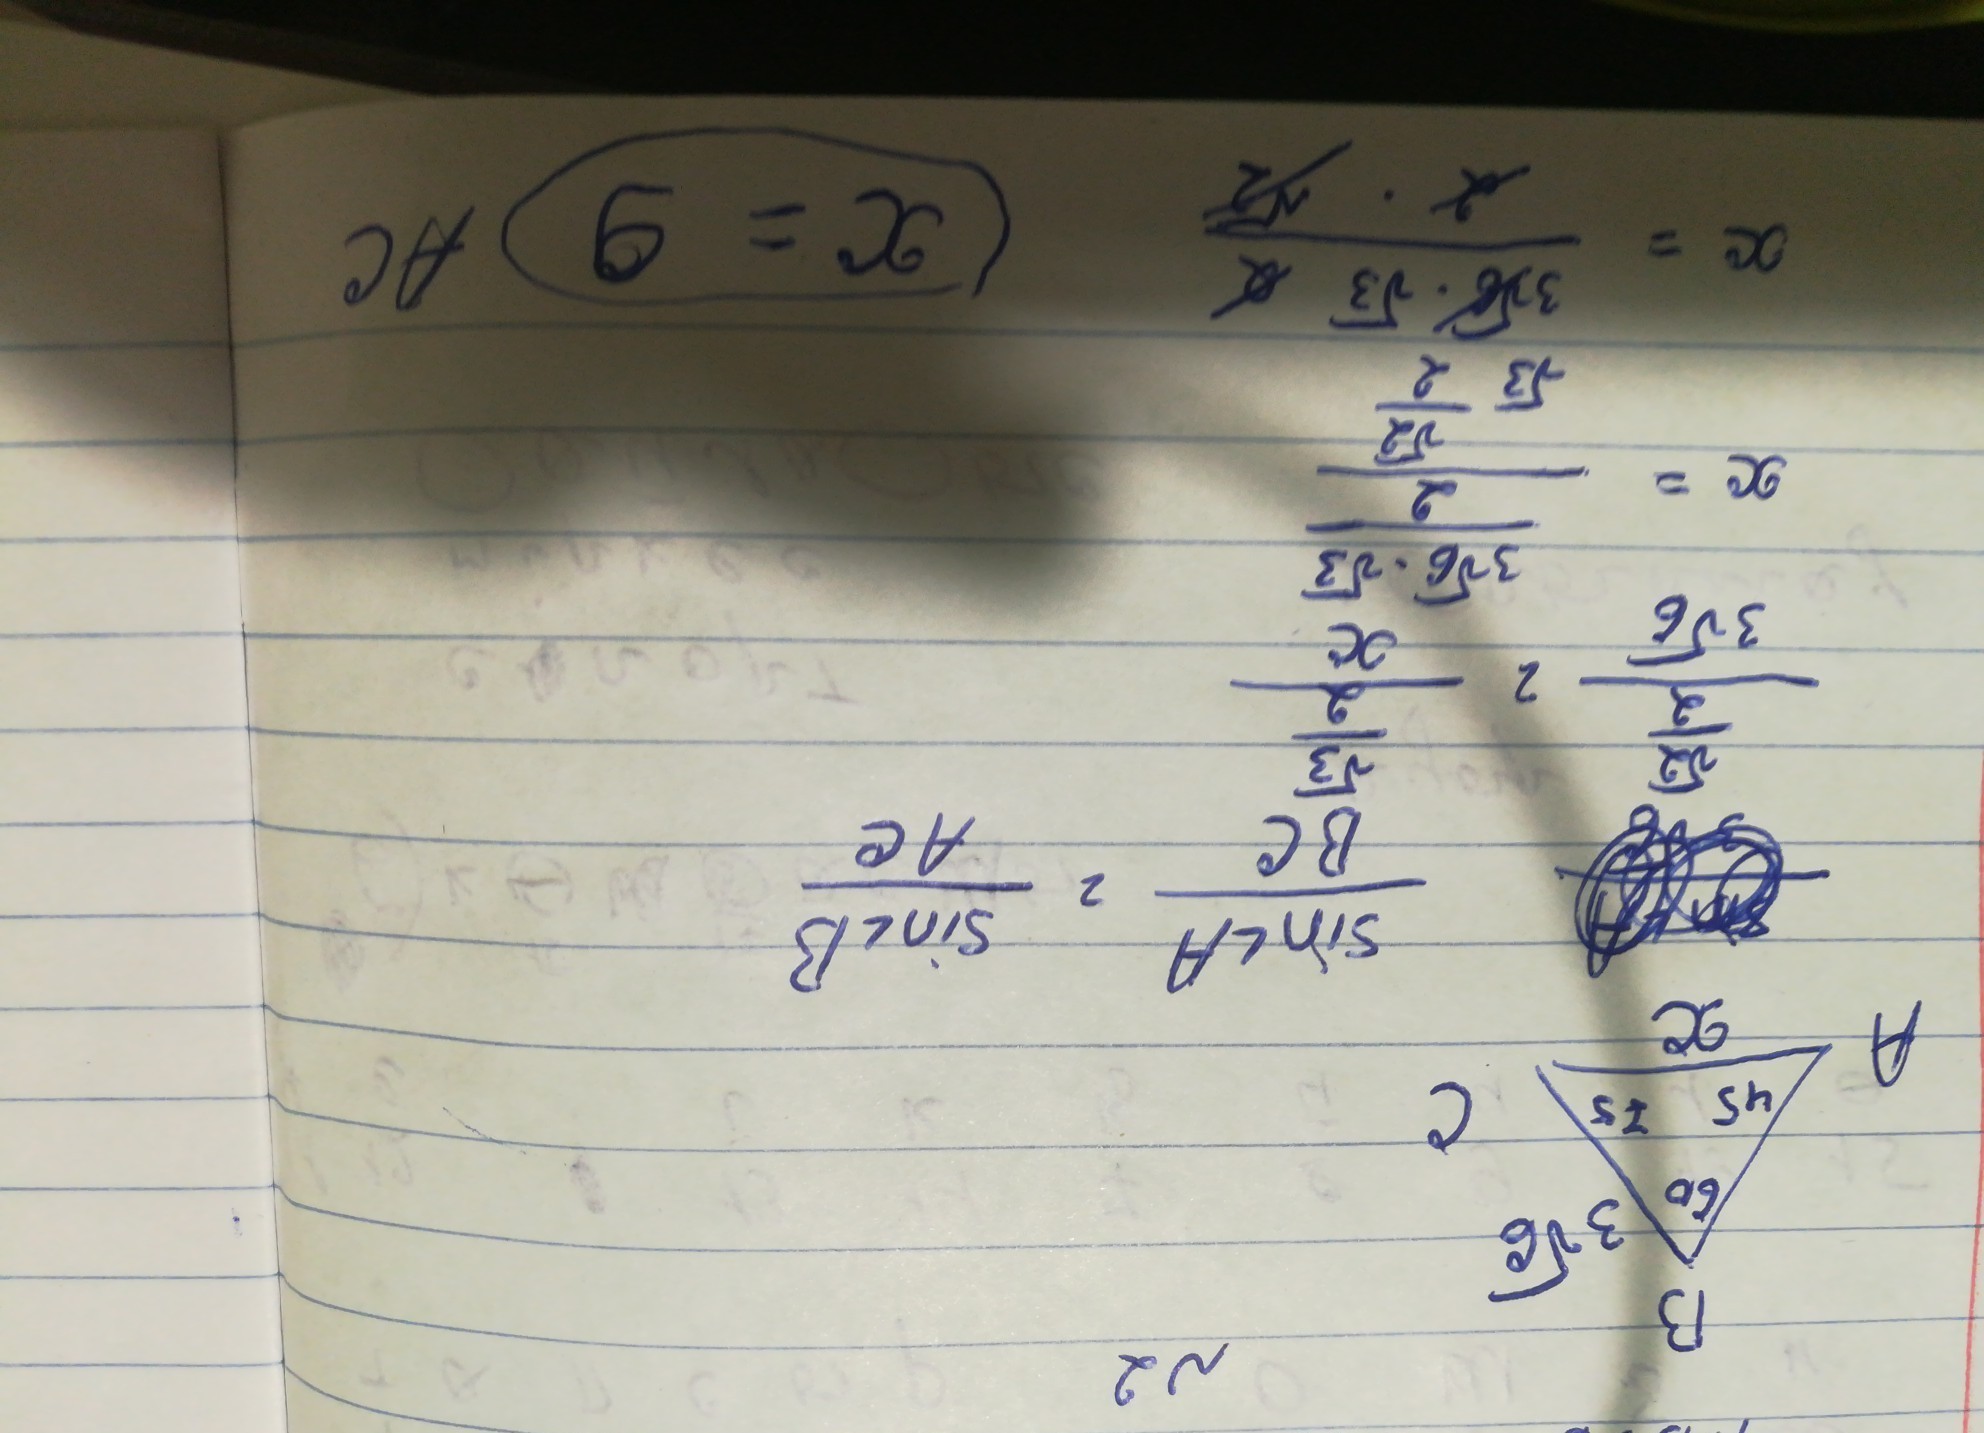 №2
B
60
3√6
45 75
A
C
x
sin∠A / BC = sin∠B / AC
(√2/2) / 3√6 = (√3/2) / x
x = (3√6·√3 / 2) / (√2/2)
√3
x = 3√6·√3 2 / 2·√2
x = 9 AC